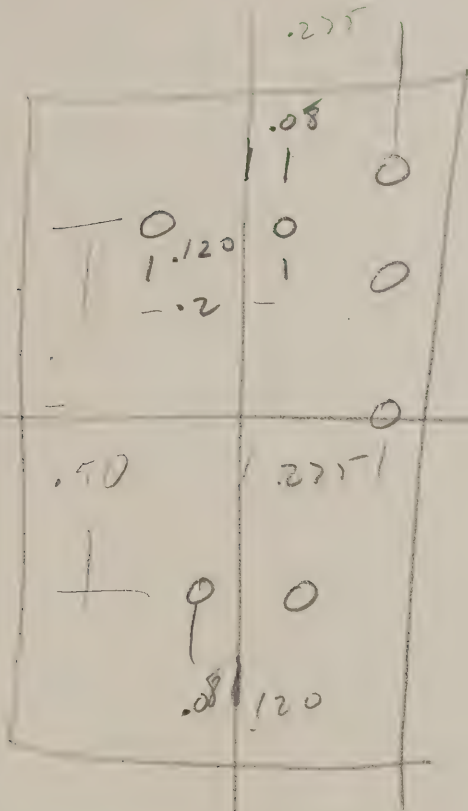 .275
.08
.120
.2
.50 .275
.08 .120